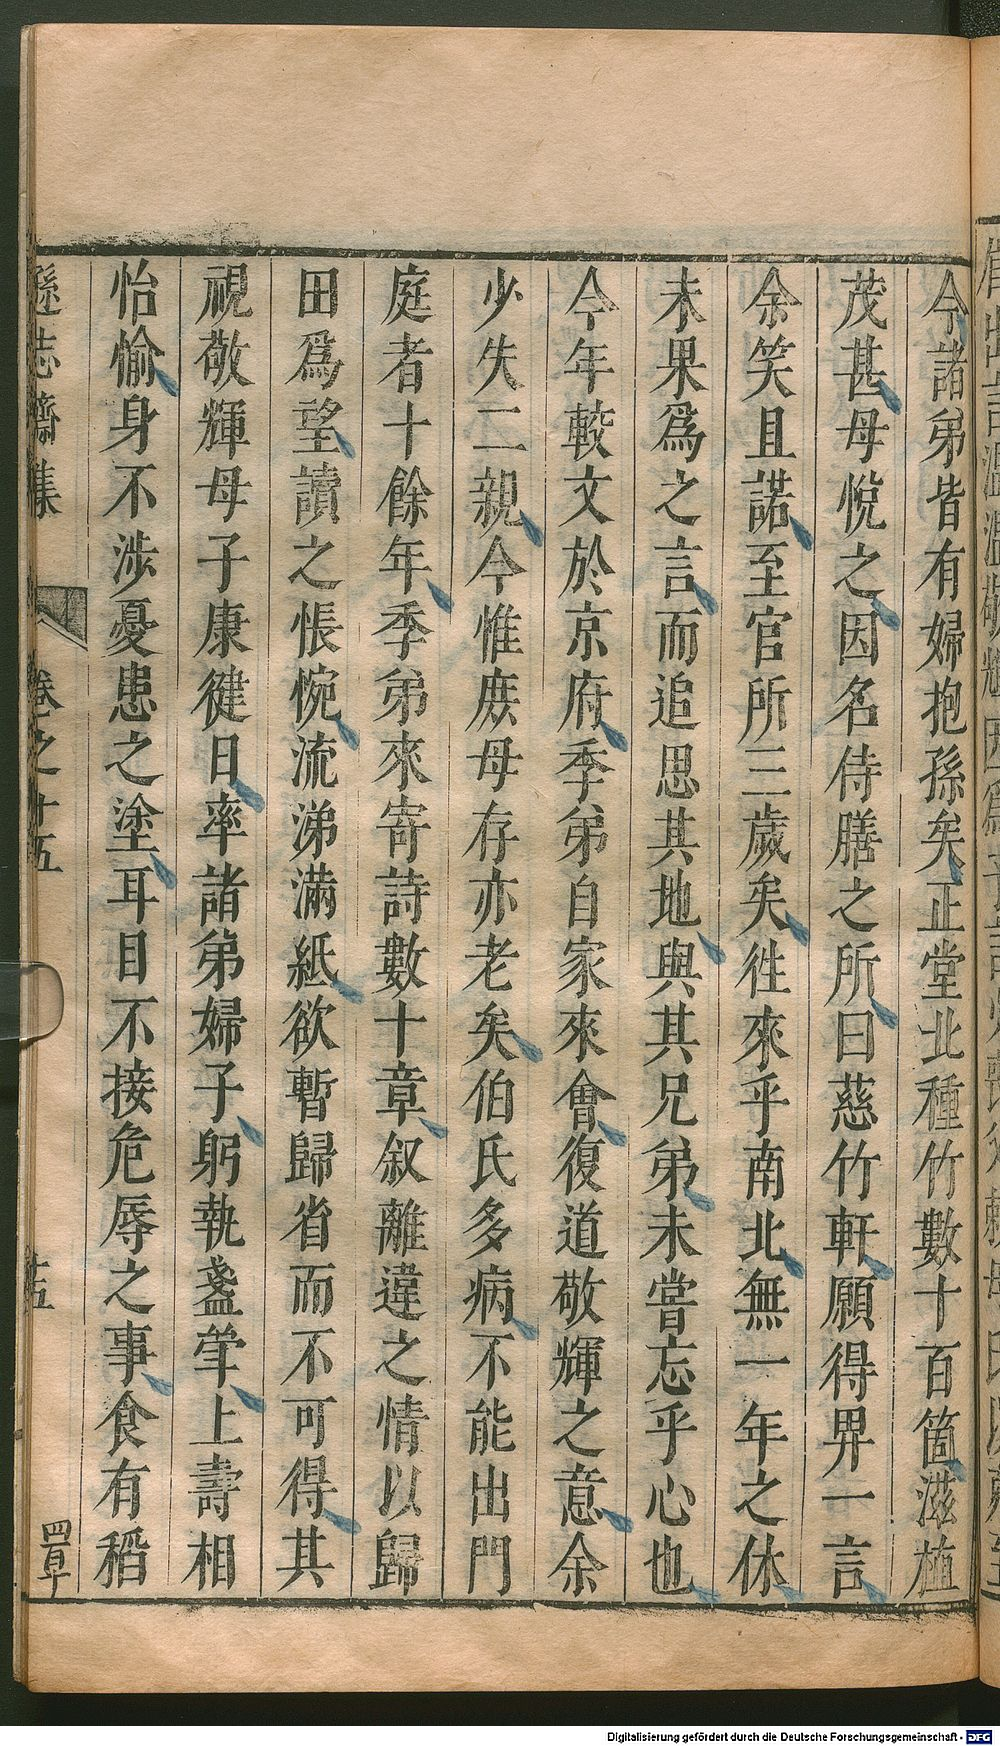 今諸弟皆有婦抱孫矣正堂北種竹數十百箇滋植
茂甚母悅之因名侍膳之所曰慈竹軒願得畀一言
余笑且諾至官所三歲矣徃來乎南北無一年之休
未果爲之言而追思其地與其兄弟未嘗忘乎心也
今年較文於京府季弟自家來會復道敬輝之意余
少失二親今惟庶母存亦老矣伯氏多病不能出門
庭者十餘年季弟來寄詩數十章叙離違之情以歸
田爲望讀之悵惋流涕滿紙欲暫歸省而不可得其
視敬輝母子康健日率諸弟婦子躬執盞斝上壽相
怡愉身不涉憂患之塗耳目不接危辱之事食有稻
遜志齋集 卷之十五 十五
Digitalisierung gefördert durch die Deutsche Forschungsgemeinschaft - DFG